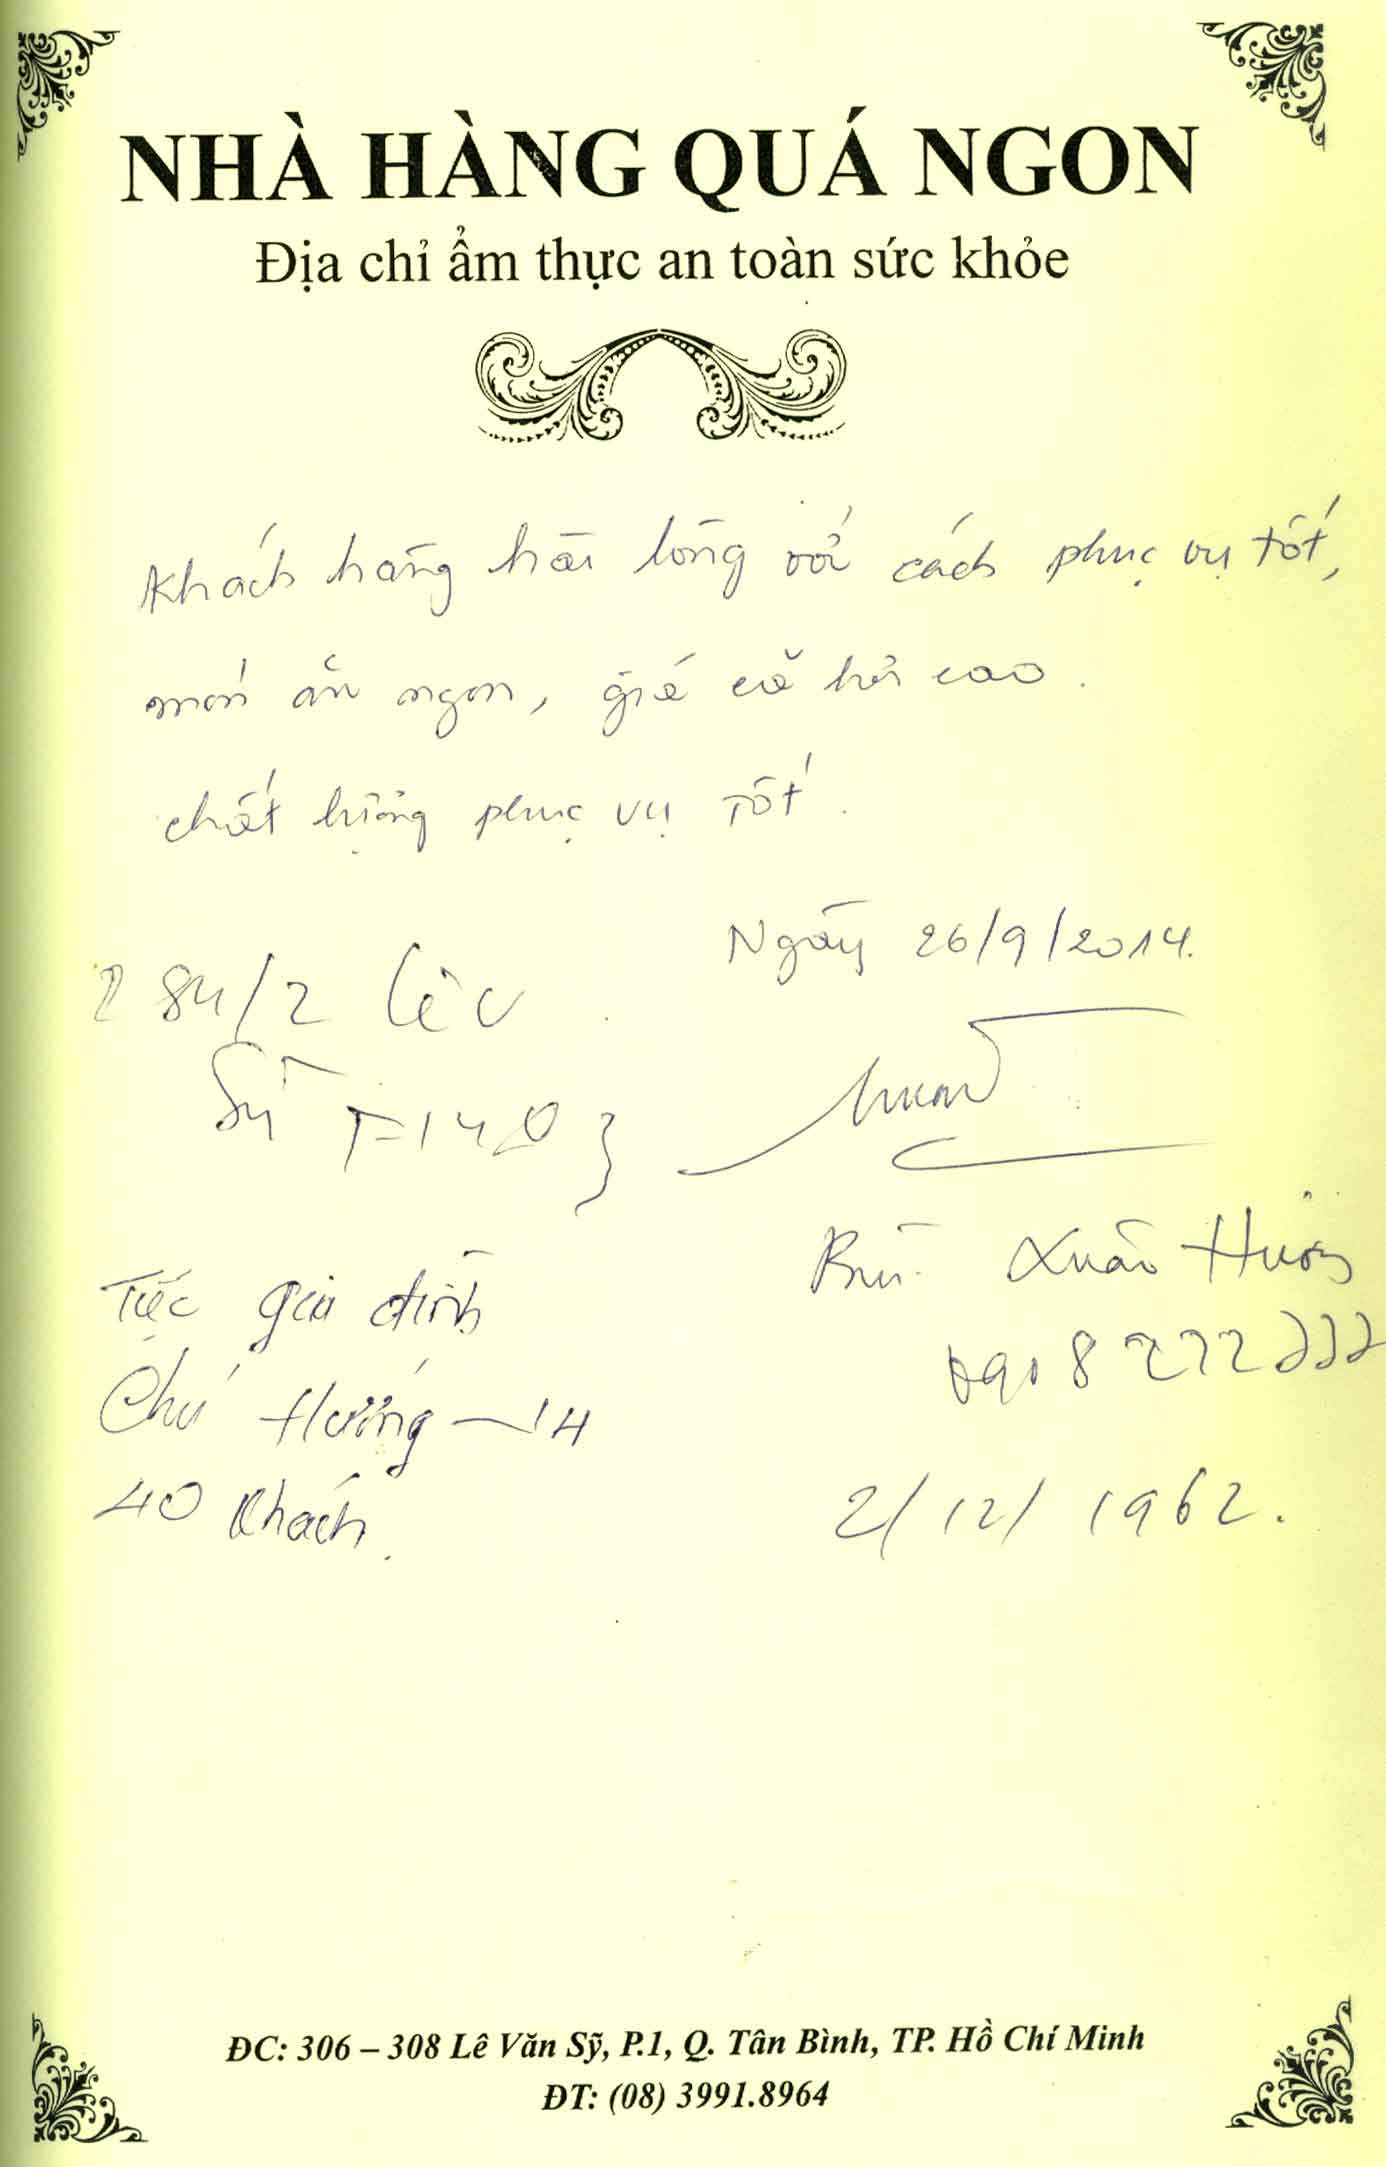 NHÀ HÀNG QUÁ NGON
Địa chỉ ẩm thực an toàn sức khỏe
Khách hàng hài lòng với cách phục vụ tốt,
món ăn ngon, giá cả hơi cao.
chất lượng phục vụ tốt.
Ngày 26/9/2014.
284/2 Lê V
Sỹ F14Q3
Bùi Xuân Hưởng
0918 272222
Tiệc gia đình
Chú Hưởng - 14
40 khách.
2/12/1962.
ĐC: 306 – 308 Lê Văn Sỹ, P.1, Q. Tân Bình, TP. Hồ Chí Minh
ĐT: (08) 3991.8964